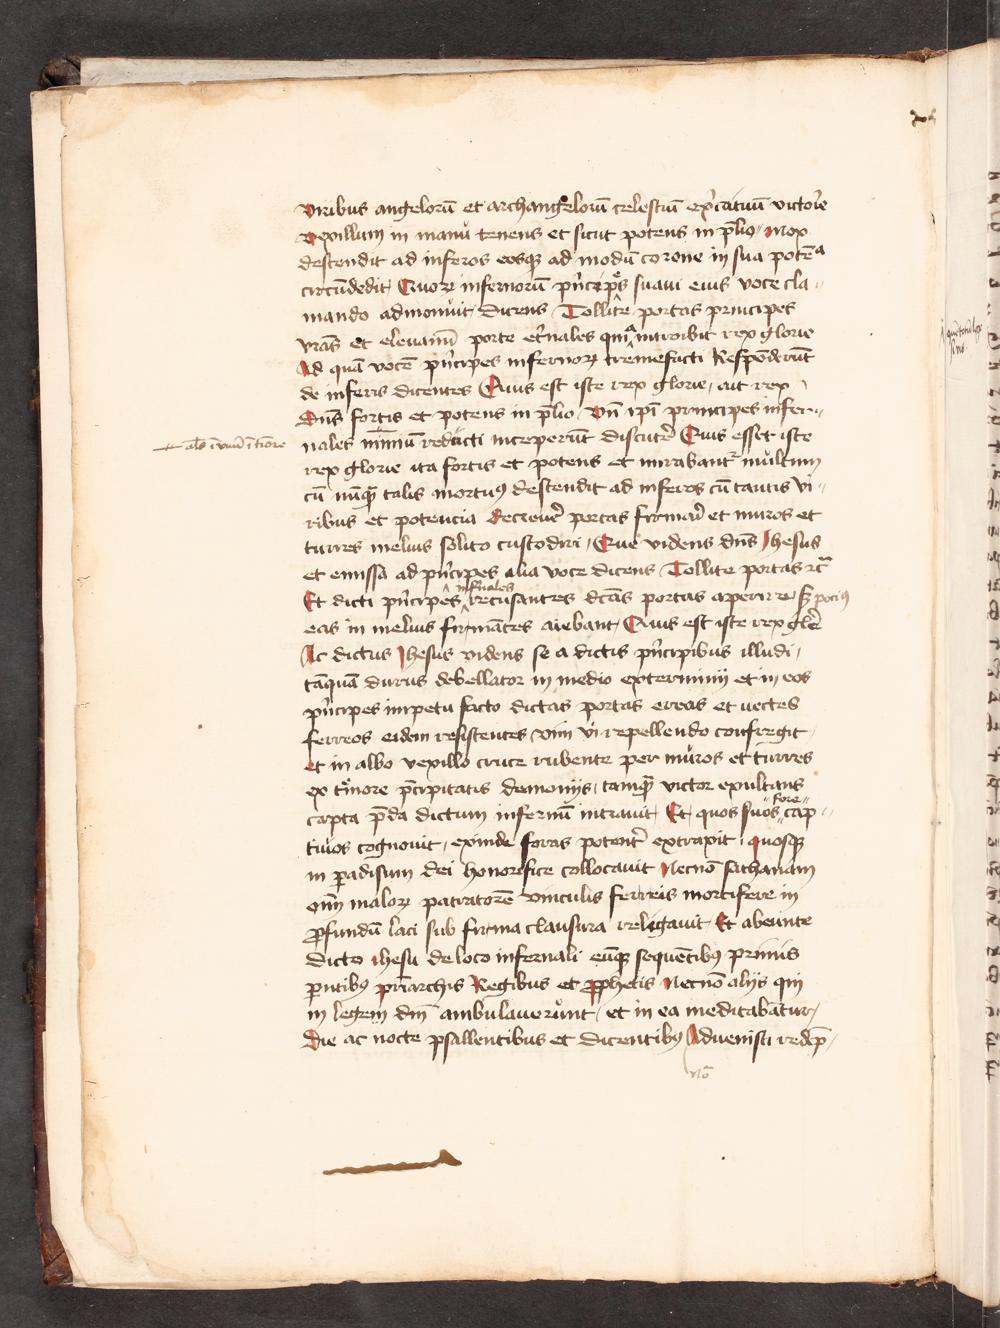 Viribus angelorū et archangelorū celestiū exercituū victorie
vexillum in manu tenens et sicut potens in prelio / mox
descendit ad inferos eosque ad modū corone in sua potēa
circūdedit Quorum infernorū prīcipes suaui eius voce cla //
mando admonuit dicens Tollite portas principes
vrās et eleuamī porte eternales quia introibit rex glorie
Ad quā vocē prīcipes infernorum tremefacti Respōderūt
de inferis dicentes Quis est iste rex glorie / aut rex
Dūs fortis et potens in prelio Vn ipī principes infer //
nales nimiū reducti inceperūt discutere Quis esset iste
rex glorie ita fortis et potens et mirabantur multum
cū nūquam talis mortuus descendit ad inferos cū tantis vi //
ribus et potencia portas firmari et muros et
turres melius solito custodiri / Que videns dūs Jhesus
et emissa ad prīcipes alia voce dicens Tollite portas rc
Et dicti prīcipes infernales recusantes dcās portas aperire / sed pocius
eas in melius firmātes aiebant / Quis est iste rex glorie
Ac dictus Jhesus videns se a dictis prīcipibus illudi /
tāquā durus debellator in medio exterminij et in eos
prīcipes impetu facto dictas portas ereas et vectes
ferreos eidem resistentes vim vi repellendo confregit
et in albo vexillo cruce rubente per muros et turres
ex timore precipitatis demonijs / tamquam victor exultans
capta preda dictum infernū intrauit Et quos suos fore cap //
tiuos cognouit / exinde foras potenter extraxit / quosque
in paradisum dei honorifice collocauit Necnō sathanam
omniū malorum patratorē vinculis ferreis mortifere in
profundū laci sub firma clausura religauit Et abeunte
dicto ihesu de loco infernali eūque sequētibus primis
parentibus priarchis Regibus et prophetis Necnō alijs qui
in legem dm̄ ambulauerunt / et in ea meditabātur /
Die ac nocte psallentibus et dicentibus Aduenisti redep /